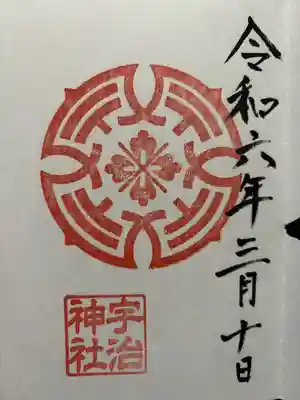 令和六年三月十日
宇治
神社